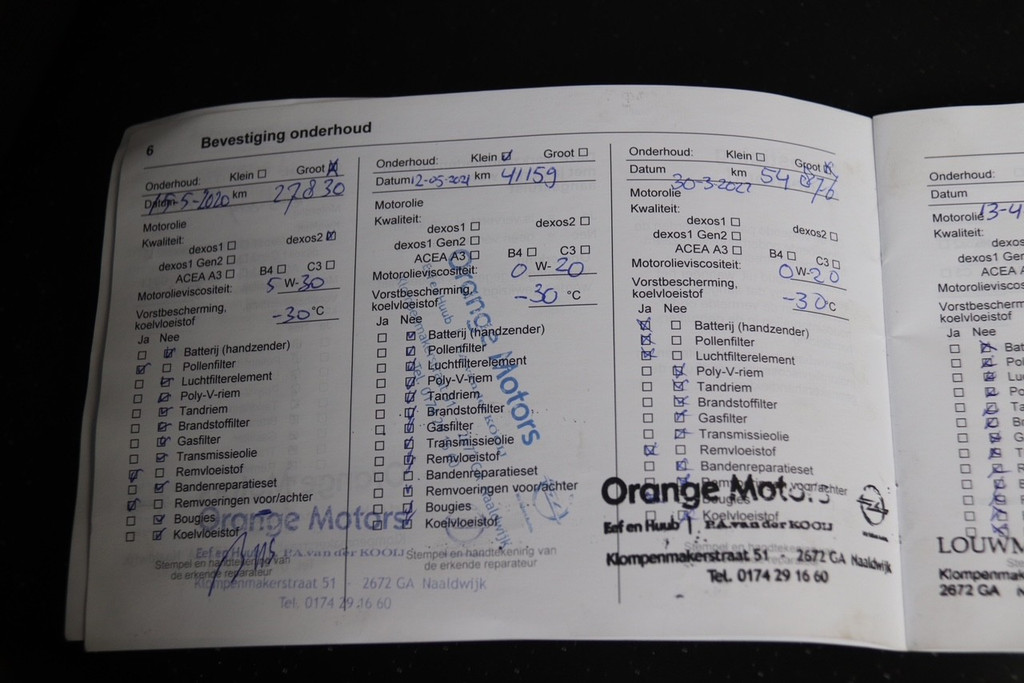 6
Bevestiging onderhoud
Onderhoud: Klein Groot
Datum 15-5-2020 km 27830
Motorolie
Kwaliteit:
dexos1 dexos2
dexos1 Gen2
ACEA A3 B4 C3
Motorolieviscositeit: 5 W-30
Vorstbescherming,
koelvloeistof -30 °C
Ja Nee
Batterij (handzender)
Pollenfilter
Luchtfilterelement
Poly-V-riem
Tandriem
Brandstoffilter
Gasfilter
Transmissieolie
Remvloeistof
Bandenreparatieset
Remvoeringen voor/achter
Bougies
Koelvloeistof
Orange Motors
Eef en Huub P.A. van der KOOIJ
Stempel en handtekening van
de erkende reparateur
Klompenmakerstraat 51 - 2672 GA Naaldwijk
Tel. 0174 29 16 60
Onderhoud: Klein Groot
Datum 12-05-2021 km 41159
Motorolie
Kwaliteit:
dexos1 dexos2
dexos1 Gen2
ACEA A3 B4 C3
Motorolieviscositeit: 0 W-20
Vorstbescherming,
koelvloeistof -30 °C
Ja Nee
Batterij (handzender)
Pollenfilter
Luchtfilterelement
Poly-V-riem
Tandriem
Brandstoffilter
Gasfilter
Transmissieolie
Remvloeistof
Bandenreparatieset
Remvoeringen voor/achter
Bougies
Koelvloeistof
Orange Motors
Stempel en handtekening van
de erkende reparateur
Onderhoud: Klein Groot
Datum 30-3-2022 km 54876
Motorolie
Kwaliteit:
dexos1 dexos2
dexos1 Gen2
ACEA A3 B4 C3
Motorolieviscositeit: 0W-20
Vorstbescherming,
koelvloeistof -30°C
Ja Nee
Batterij (handzender)
Pollenfilter
Luchtfilterelement
Poly-V-riem
Tandriem
Brandstoffilter
Gasfilter
Transmissieolie
Remvloeistof
Bandenreparatieset
Bougies
Koelvloeistof
Orange Motors
Eef en Huub P.A. van der KOOIJ
Klompenmakerstraat 51 - 2672 GA Naaldwijk
Tel. 0174 29 16 60
Onderhoud:
Datum
Motorolie 13-4
Kwaliteit:
dexos
dexos1 Ge
ACEA A
Motorolieviscos
Vorstbescherm
koelvloeistof
Ja Nee
Bat
Po
Lu
Po
Ta
Br
G
T
R
LOUWM
Klompenma
2672 GA N